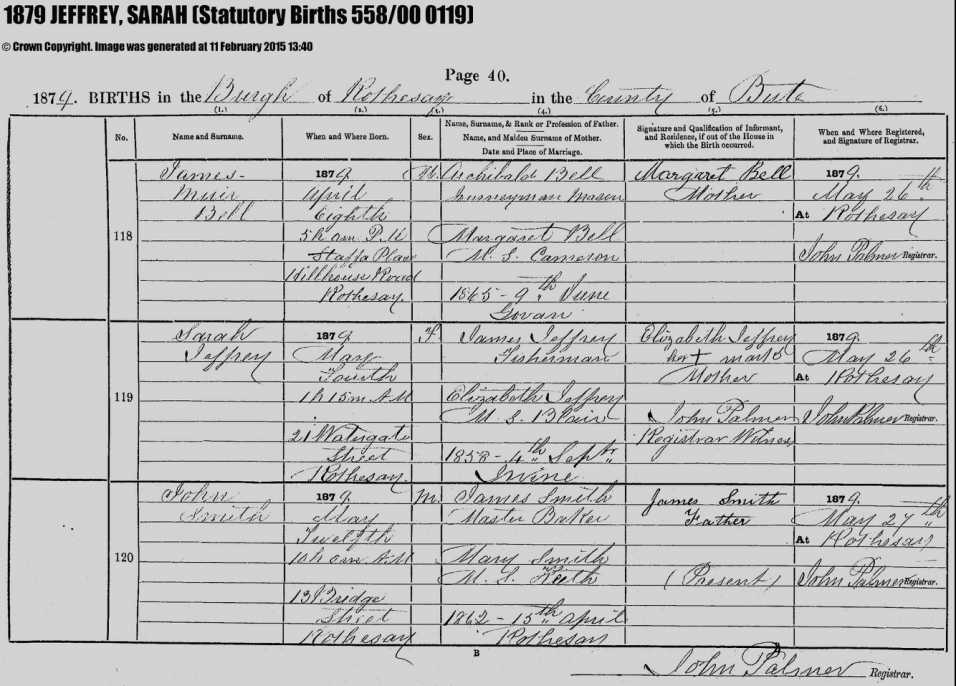 1879 JEFFREY, SARAH (Statutory Births 558/00 0119)
© Crown Copyright. Image was generated at 11 February 2015 13:40
Page 40.
1879. BIRTHS in the Burgh of Rothesay in the County of Bute
(1.) (2.) (3.) (4.) (5.) (6.)
No.
Name and Surname.
When and Where Born.
Sex.
Name, Surname, & Rank or Profession of Father.
Name, and Maiden Surname of Mother.
Date and Place of Marriage.
Signature and Qualification of Informant,
and Residence, if out of the House in
which the Birth occurred.
When and Where Registered,
and Signature of Registrar.
118
James
Muir
Bell
1879.
April
Eighth
5h am P.M
Staffa Place
Hillhouse Road
Rothesay.
M.
Archibald Bell
Journeyman Mason
Margaret Bell
M. S. Cameron
1865 - 9th June
Govan
Margaret Bell
Mother
1879.
May 26th
At Rothesay
John Palmer Registrar.
119
Sarah
Jeffrey
1879.
May
Fourth
1h 15m AM
21 Watergate
Street
Rothesay.
F
James Jeffrey
Fisherman
Elizabeth Jeffrey
M. S. Blair
1858 - 4th Septr.
Irvine
Elizabeth Jeffrey
her + mark
Mother
John Palmer
Registrar Witness
1879.
May 26th
At Rothesay
John Palmer Registrar.
120
John
Smith
1879.
May
Twelfth
10h am AM
13 Bridge
Street
Rothesay
M.
James Smith
Master Baker
Mary Smith
M. S. Keith
1862 - 15th April
Rothesay
James Smith
Father
(Present)
1879.
May 27th
At Rothesay
John Palmer Registrar.
B
John Palmer Registrar.